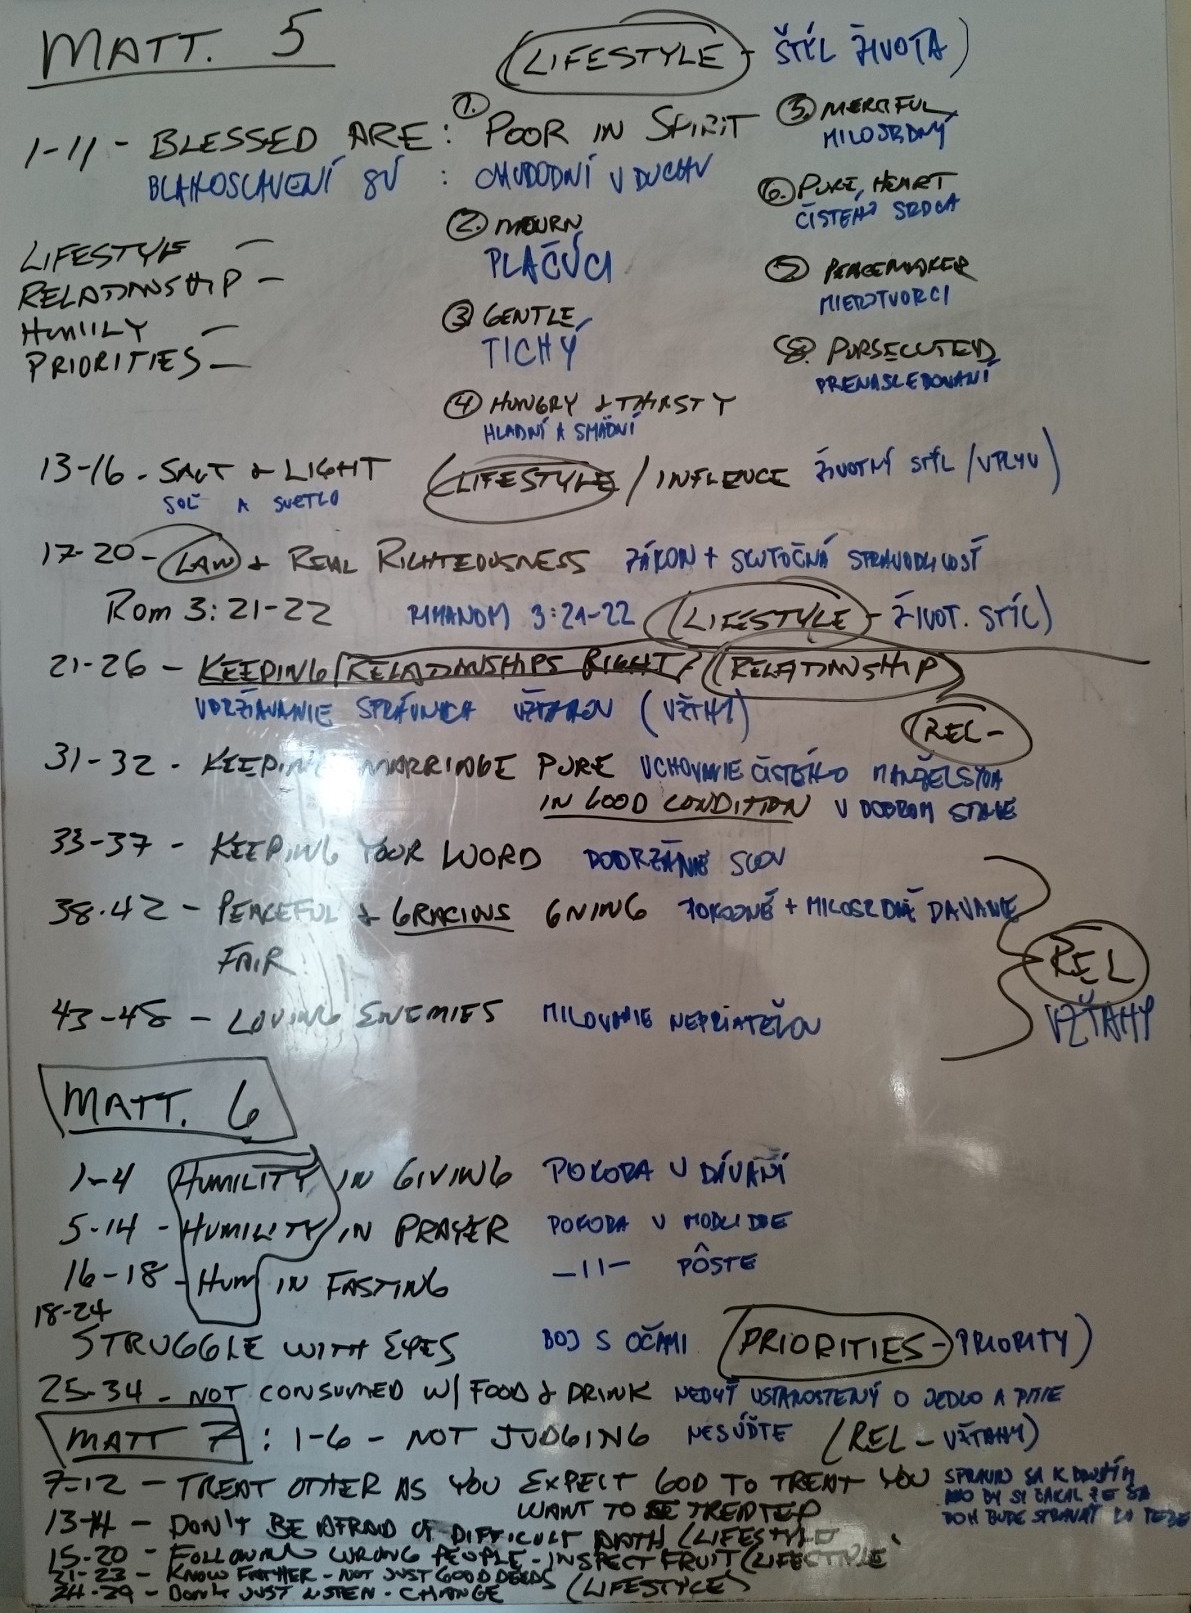 MATT. 5
(LIFESTYLE - ŠTÝL ŽIVOTA)
1-11 - BLESSED ARE: 1. POOR IN SPIRIT
BLAHOSLAVENÍ SÚ : CHUDOBNÍ V DUCHU
2. MOURN
PLAČÚCI
3. GENTLE
TICHÝ
4. HUNGRY & THIRSTY
HLADNÍ A SMÄDNÍ
5. MERCIFUL
MILOSRDNÝ
6. PURE HEART
ČISTÉHO SRDCA
PEACEMAKER
MIEROTVORCI
8. PURSECUTED
PRENASLEDOVANÍ
LIFESTYLE -
RELATIONSHIP -
HUMILY -
PRIORITIES -
13-16 - SALT & LIGHT (LIFESTYLE / INFLUENCE ŽIVOTNÝ STÝL / VPLYV)
SOĽ A SVETLO
17-20 - LAW & REAL RIGHTEOUSNESS ZÁKON + SKUTOČNÁ SPRAVODLIVOSŤ
ROM 3:21-22 RIMANOM 3:21-22 (LIFESTYLE - ŽIVOT. STÍL)
21-26 - KEEPING RELATIONSHIPS RIGHT / (RELATIONSHIP)
UDRŽIAVANIE SPRÁVNYCH VZŤAHOV (VZŤAHY)
REL-
31-32 - KEEPING MARRIAGE PURE UCHOVANIE ČISTÉHO MANŽELSTVA
IN GOOD CONDITION V DOBROM STAVE
33-37 - KEEPING YOUR WORD DODRŽANIE SLOV
38-42 - PEACEFUL & GRACIOUS GIVING + MILOSRDNÉ DAVANIE
FAIR
REL
VZŤAHY
43-48 - LOVING ENEMIES MILOVANIE NEPRIATEĽOV
MATT. 6
1-4 HUMILITY IN GIVING POKORA V DÁVANÍ
5-14 - HUMILITY IN PRAYER POKORA V MODLIDBE
16-18 - HUM IN FASTING -11- PÔSTE
18-24
STRUGGLE WITH EYES BOJ S OČAMI (PRIORITIES - PRIORITY)
25-34 - NOT CONSUMED W/ FOOD & DRINK NEBYŤ USTAROSTENÝ O JEDLO A PITIE
MATT 7 : 1-6 - NOT JUDGING NESÚĎTE (REL - VZŤAHY)
7-12 - TREAT OTHER AS YOU EXPECT GOD TO TREAT YOU
WANT TO BE TREATED
SPRAVAJ SA K DRUHÝM
AKO BY SI ČAKAL ŽE SA
BOH BUDE SPRAVAT KU TEBE
13-14 - DON'T BE AFRAID OF DIFFICULT PATH (LIFESTYLE
15-20 - FOLLOWING WRONG PEOPLE - INSPECT FRUIT (LIFESTYLE
21-23 - KNOW FATHER - NOT JUST GOOD DEEDS (LIFESTYLE)
24-29 - DON'T JUST LISTEN - CHANGE